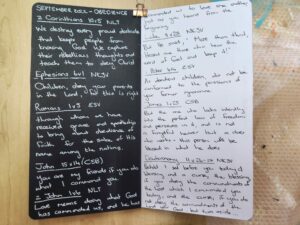 SEPTEMBER 2021 - OBEDIENCE
2 Corinthians 10v5 NLT
We destroy every proud obstacle
that keeps people from
knowing God. We capture
their rebellious thoughts and
teach them to obey Christ
Ephesians 6v1 NRSV
Children, obey your parents
in the Lord, for this is right
Romans 1v5 ESV
through whom we have
received grace and apostleship
to bring about the obedience of
faith for the sake of his
name among the nations.
John 15v14 (CSB)
You are my friends if you do
what I command you
2 John 1v6 NLT
Love means doing what God
has commanded us, and he has
commanded us to love one another
just as you heard from the
beginning
Luke 11v28 NKJV
But He said, "More than that,
blessed are those who hear the
word of God and keep it"
1 Peter 1v14 ESV
As obedient children, do not be
conformed to the passions
of your former ignorance
James 1v25 CSB
But the one who looks intently
into the perfect law of freedom
and perseveres in it, and is not
a forgetful hearer but a doer
who works this person will be
blessed in what he does
Deuteronomy 11v26-28 NKJV
Behold, I set before you today a
blessing and a curse: the blessing,
if you obey the commandments of
the Lord which I command you
today; and the curse, if you do
not obey the commandments of
the